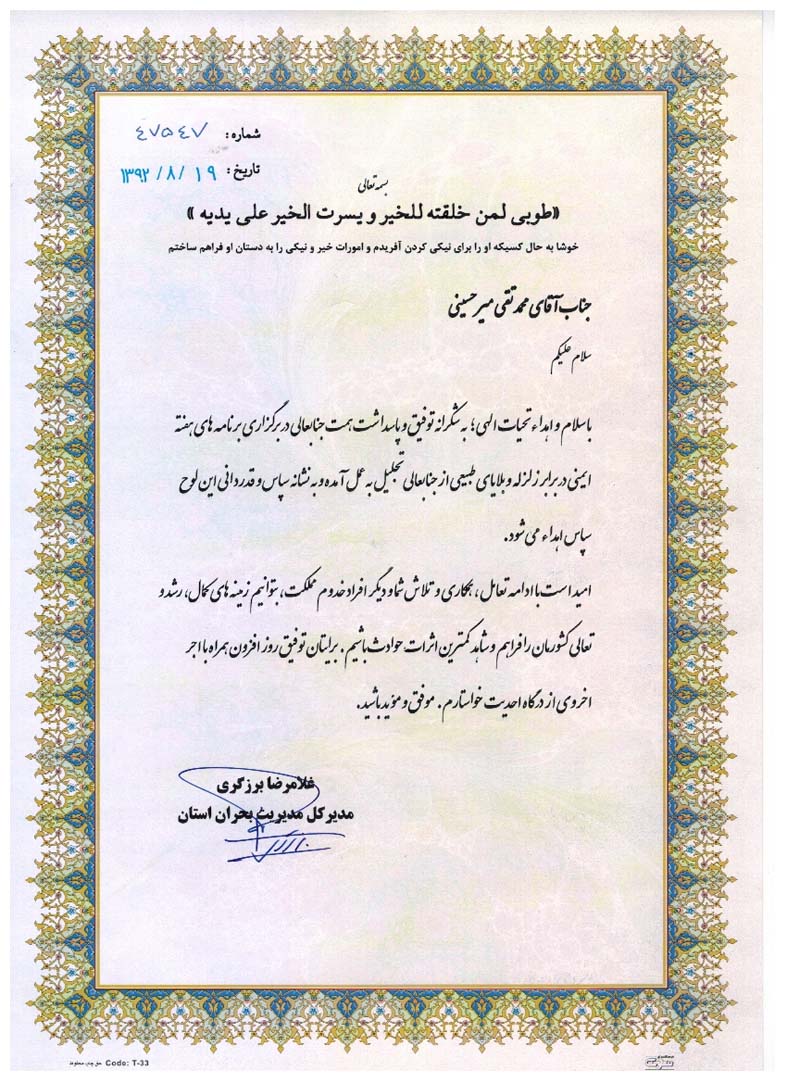 شماره: ٤٧٥٤٧
تاریخ: ۱۳۹۲/۸/۱۹
بسمه تعالی
«طوبی لمن خلقته للخیر و یسرت الخیر علی یدیه»
خوشا به حال کسیکه او را برای نیکی کردن آفریدم و امورات خیر و نیکی را به دستان او فراهم ساختم
جناب آقای محمد تقی میرحسینی
سلام علیکم
با سلام و اهداء تحیات الهی؛ به شکرانه توفیق و پاسداشت همت جنابعالی در برگزاری برنامه های هفته
ایمنی در برابر زلزله و بلایای طبیعی از جنابعالی تجلیل به عمل آمده و به نشانه سپاس و قدردانی این لوح
سپاس اهداء می شود.
امید است با ادامه تعامل، همکاری و تلاش شما و دیگر افراد خدوم مملکت، بتوانیم زمینه های کمال، رشد و
تعالی کشورمان را فراهم و شاهد کمترین اثرات حوادث باشیم. برایتان توفیق روز افزون همراه با اجر
اخروی از درگاه احدیت خواستارم. موفق و مؤید باشید.
غلامرضا برزگری
مدیرکل مدیریت بحران استان
حق چاپ محفوظ Code: T-33